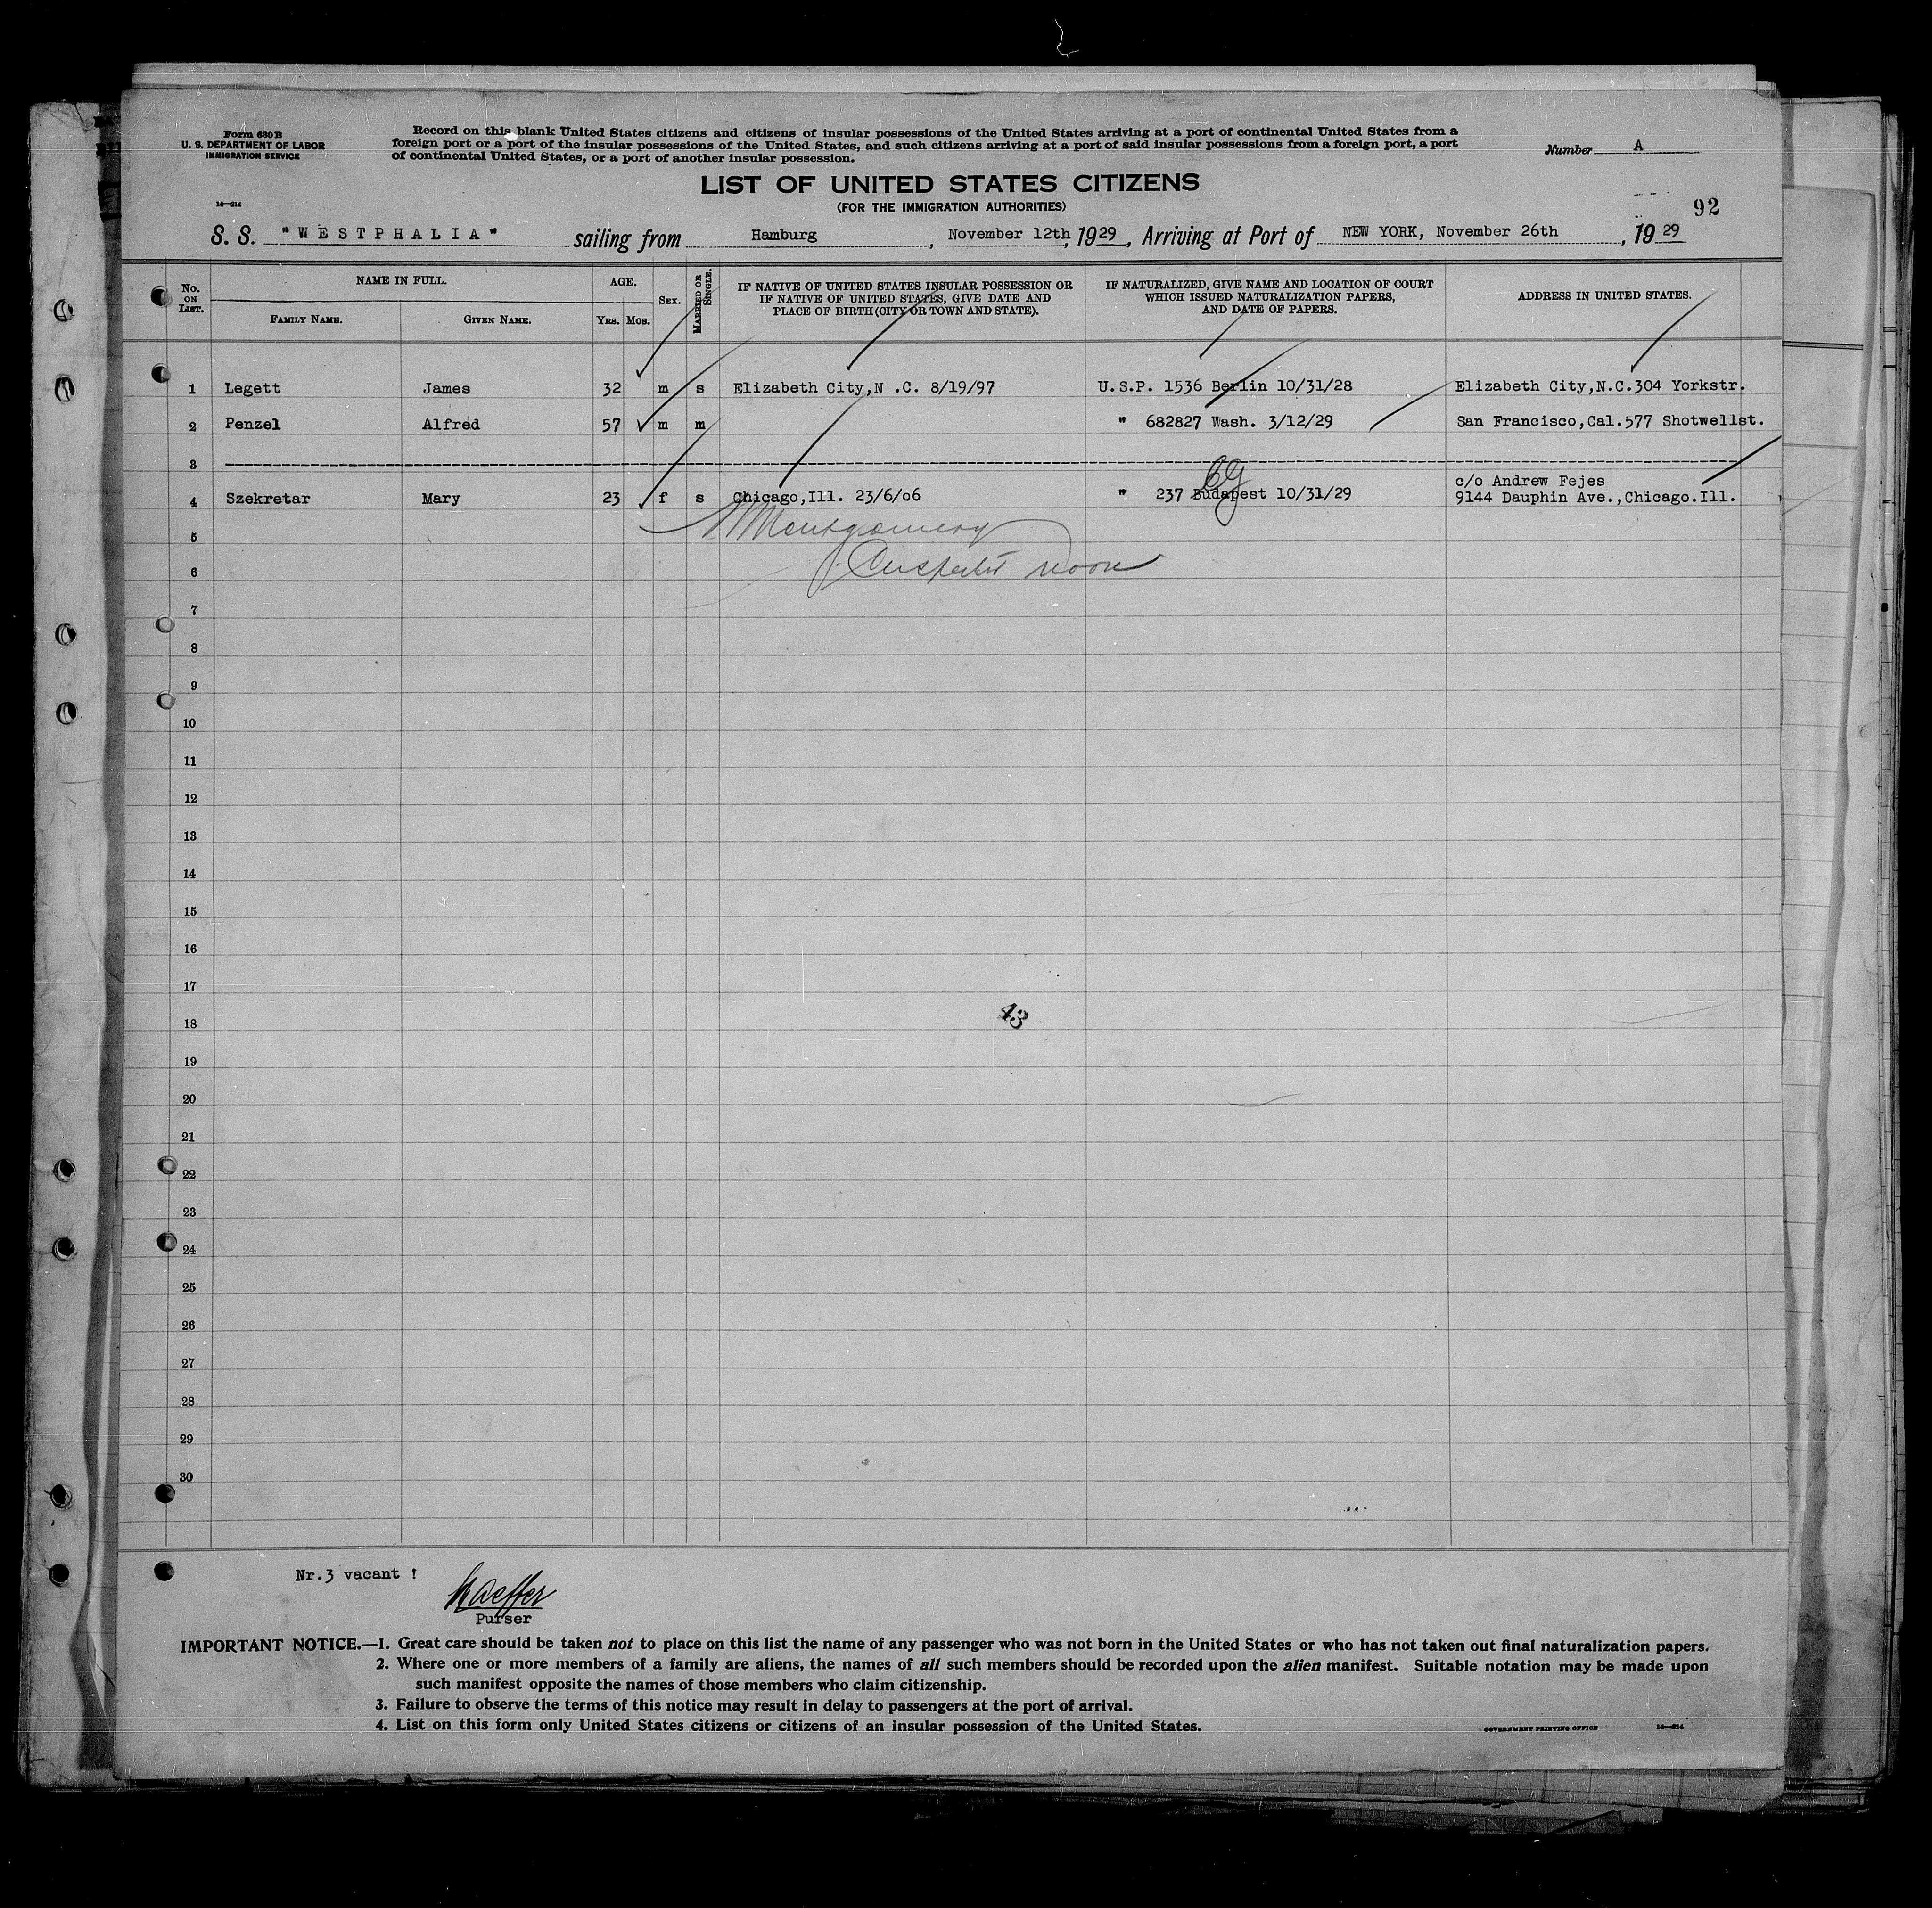 Form 630 B
U. S. DEPARTMENT OF LABOR
IMMIGRATION SERVICE
14—214
Record on this blank United States citizens and citizens of insular possessions of the United States arriving at a port of continental United States from a
foreign port or a port of the insular possessions of the United States, and such citizens arriving at a port of said insular possessions from a foreign port, a port
of continental United States, or a port of another insular possession.
Number A
LIST OF UNITED STATES CITIZENS
(FOR THE IMMIGRATION AUTHORITIES)
92
S. S. "WESTPHALIA" sailing from Hamburg, November 12th, 1929, Arriving at Port of NEW YORK, November 26th, 1929
No. ON LIST. NAME IN FULL. AGE. SEX. MARRIED OR SINGLE. IF NATIVE OF UNITED STATES INSULAR POSSESSION OR IF NATIVE OF UNITED STATES, GIVE DATE AND PLACE OF BIRTH (CITY OR TOWN AND STATE). IF NATURALIZED, GIVE NAME AND LOCATION OF COURT WHICH ISSUED NATURALIZATION PAPERS, AND DATE OF PAPERS. ADDRESS IN UNITED STATES.
FAMILY NAME. GIVEN NAME. YRS. MOS.
1 Legett James 32 m s Elizabeth City,N .C. 8/19/97 U.S.P. 1536 Berlin 10/31/28 Elizabeth City,N.C.304 Yorkstr.
2 Penzel Alfred 57 m m " 682827 Wash. 3/12/29 San Francisco,Cal.577 Shotwellst.
3
c/o Andrew Fejes
4 Szekretar Mary 23 f s Chicago,Ill. 23/6/06 " 237 Budapest 10/31/29 9144 Dauphin Ave.,Chicago.Ill.
5 Montgomery
6
7
8
9
10
11
12
13
14
15
16
17
43
18
19
20
21
22
23
24
25
26
27
28
29
30
Nr.3 vacant !
Purser
IMPORTANT NOTICE.—1. Great care should be taken not to place on this list the name of any passenger who was not born in the United States or who has not taken out final naturalization papers.
2. Where one or more members of a family are aliens, the names of all such members should be recorded upon the alien manifest. Suitable notation may be made upon
such manifest opposite the names of those members who claim citizenship.
3. Failure to observe the terms of this notice may result in delay to passengers at the port of arrival.
4. List on this form only United States citizens or citizens of an insular possession of the United States.
GOVERNMENT PRINTING OFFICE 14—214